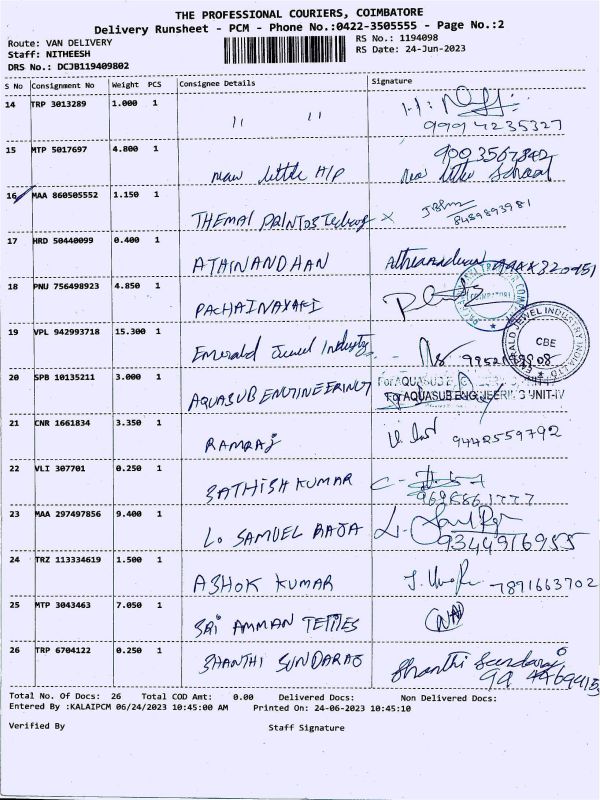 THE PROFESSIONAL COURIERS, COIMBATORE
Delivery Runsheet - PCM - Phone No.:0422-3505555 - Page No.:2
Route: VAN DELIVERY RS No.: 1194098
Staff: NITHEESH RS Date: 24-Jun-2023
DRS No.: DCJB119409802
S No Consignment No Weight PCS Consignee Details Signature
14 TRP 3013289 1.000 1 " "
99942 35327
15 MTP 5017697 4.800 1 new little H/P 9003567842
new little School
16 MAA 860505552 1.150 1 THEMAI 8489893981
17 HRD 50440099 0.400 1 ATHINANDHAN
18 PNU 756498923 4.850 1 PACHAINAYAKI
19 VPL 942993718 15.300 1 Emerald Jewel Industry
EMERALD JEWEL INDUSTRY INDIA LTD CBE
20 SPB 10135211 3.000 1 AQUASUB ENGINEERING
For AQUASUB ENGINEERING UNIT-IV
21 CNR 1661834 3.350 1 RAMRAJ 9442559792
22 VLI 307701 0.250 1 SATHISH KUMAR
23 MAA 297497856 9.400 1 L. SAMUEL RAJA 9344916955
24 TRZ 113334619 1.500 1 ASHOK KUMAR 7891663702
25 MTP 3043463 7.050 1 SRI AMMAN
26 TRP 6704122 0.250 1 SHANTHI SUNDARAJ Shanthi Sundaraj
Total No. Of Docs: 26 Total COD Amt: 0.00 Delivered Docs: Non Delivered Docs:
Entered By :KALAIPCM 06/24/2023 10:45:00 AM Printed On: 24-06-2023 10:45:10
Verified By Staff Signature